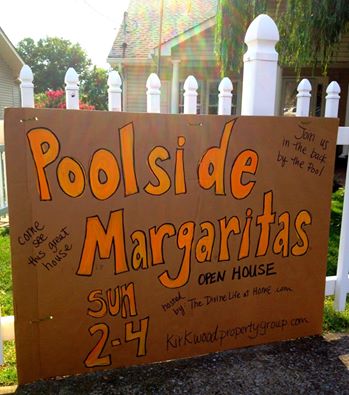 Poolside
Join us
in the back
by the Pool
come
see
this great
house
Margaritas
OPEN HOUSE
SUN
2-4
hosted
by: The Divine Life at Home.com
Kirkwoodpropertygroup.com